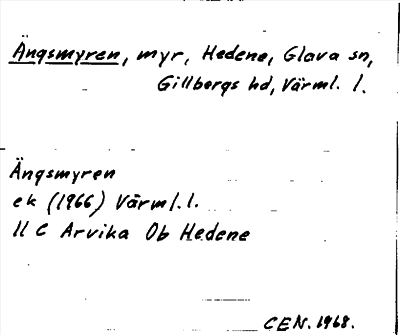 Ängsmyren, myr, Hedene, Glava sn,
Gillbergs hd, Värml. l.
Ängsmyren
ek (1966) Värml. l.
11 C Arvika 0b Hedene
CEN. 1968.